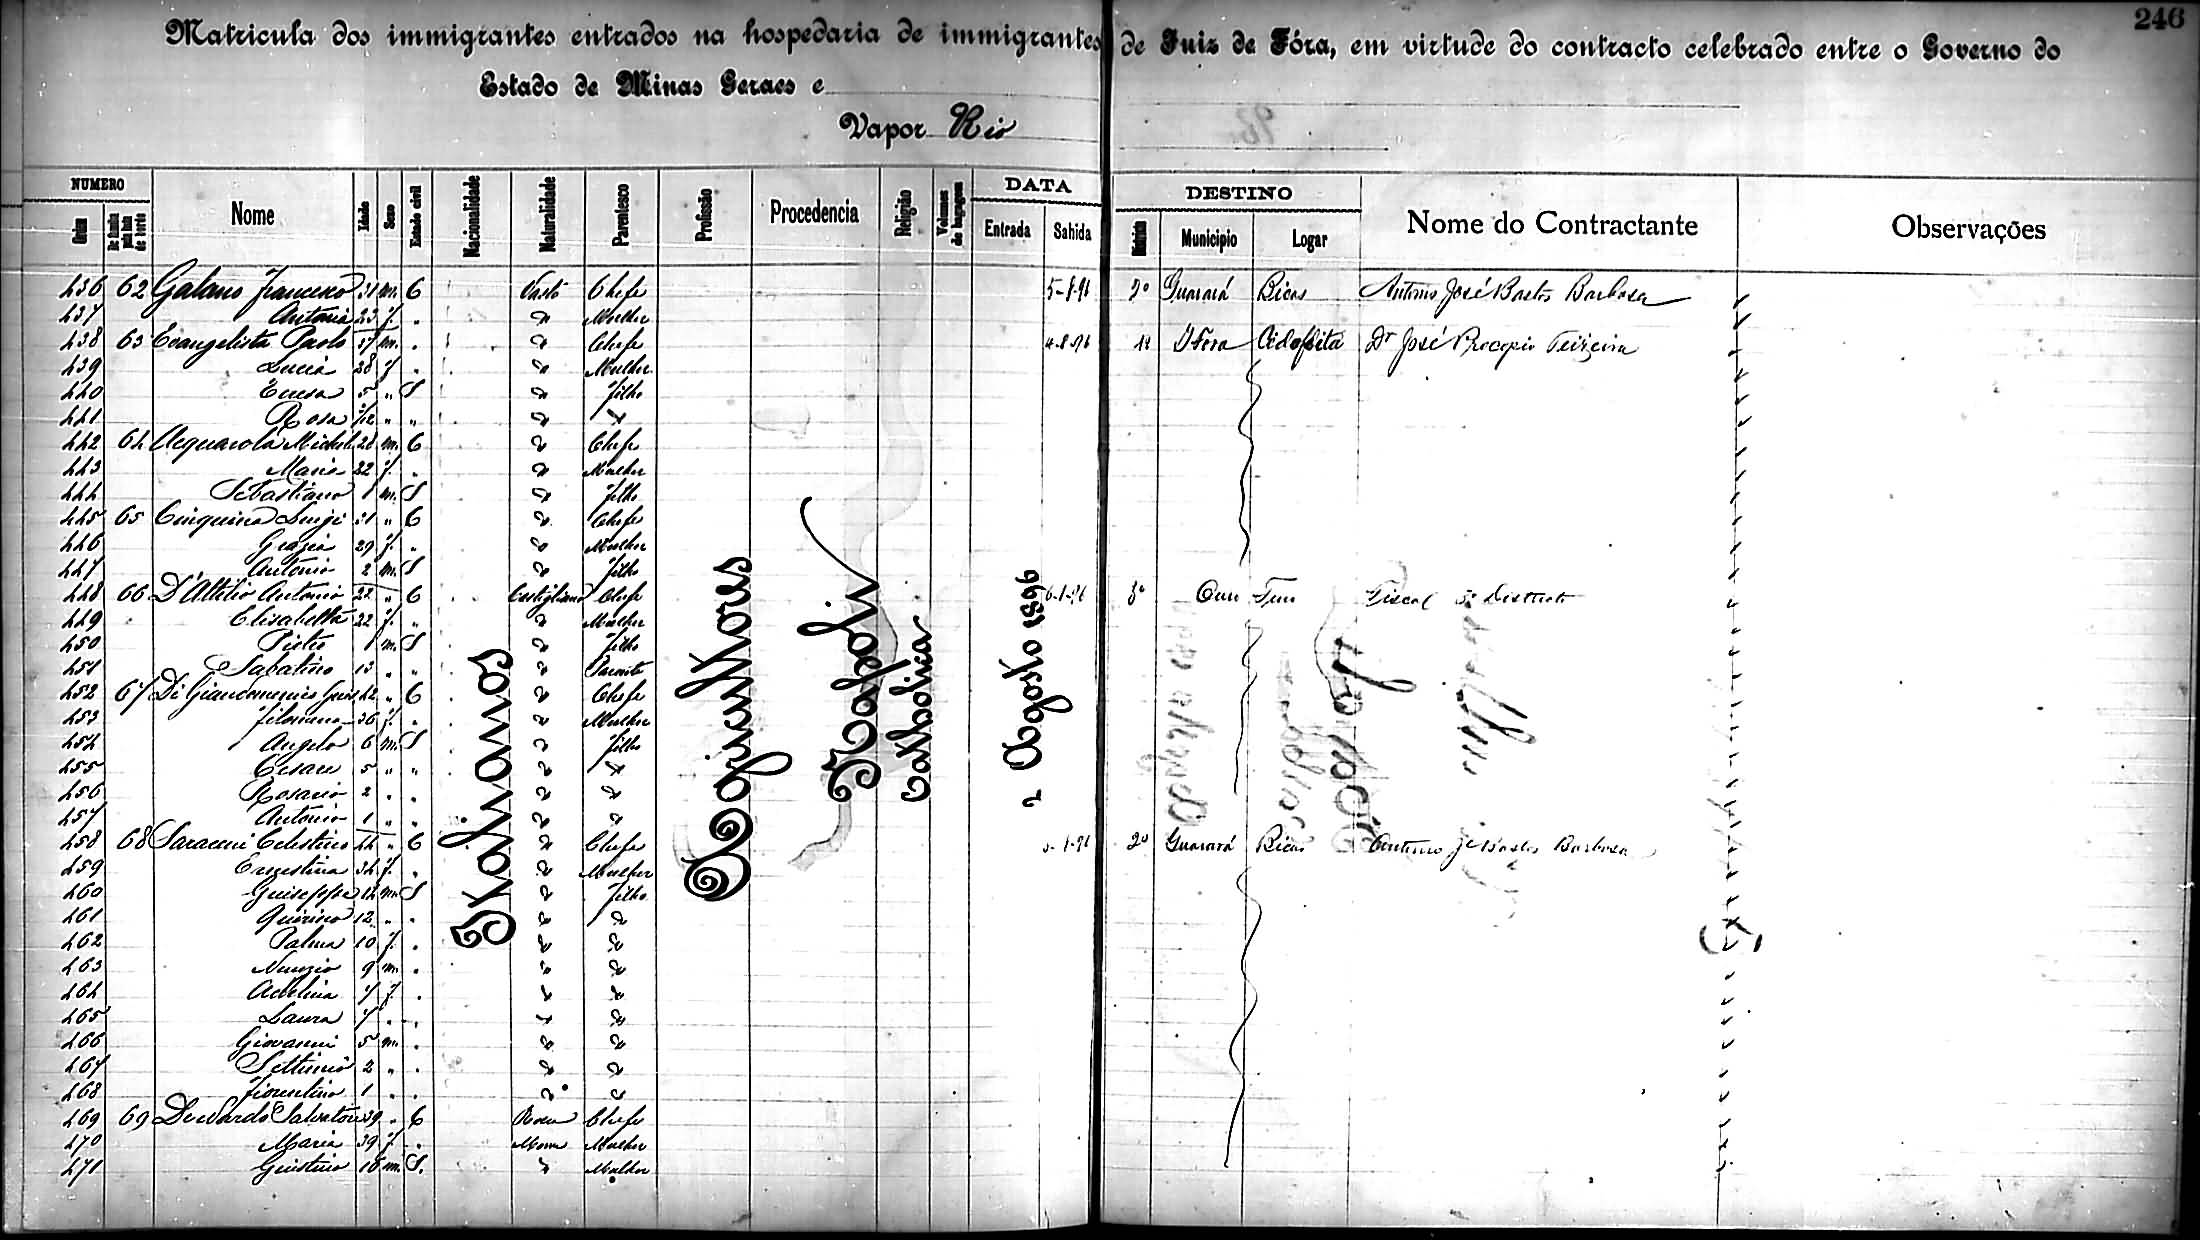 246
Matricula dos immigrantes entrados na hospedaria de immigrantes de Juiz de Fóra, em virtude do contracto celebrado entre o Governo do
Estado de Minas Geraes e
Vapor Rio
NUMERO Nome Idade Sexo Estado civil Nacionalidade Naturalidade Parentesco Profissão Procedencia Religião Volumes de bagagem DATA DESTINO Nome do Contractante Observações
Ordem Entrada Sahida Municipio Logar
436 62 Galano Francesco 31 m. C Vasto Chefe 5-8-96 2º Guarará Bicas Antonio José Bastos Barbosa
437 Antonia 23 f. " " Mulher
438 63 Evangelista Paolo m. " " Chefe 4-8-96 J Fora Dr José Procopio Teixeira
439 Lucia 28 f " " Mulher
440 5 " S " filho
441 Rosa " " "
442 64 Acquarola Michele 28 m. C " Chefe
443 Maria 22 f. " " Mulher
444 Sebastiano 1 m. S " filho
445 65 Cinquina Luigi 31 " C " Chefe
446 Grazia 29 f. " " Mulher
447 Antonio 2 m. S " filho
448 66 D'Attilio Antonio 22 " C Castigliano Chefe 3º Fiscal 3º Districto
449 Elisabetta 22 f. " " Mulher
450 Pietro 1 m. S " filho
451 Sabatino 13 " " " Parente
452 67 Di Giandomenico 42 " C " Chefe
453 Filomena 36 f. " " Mulher
454 Angelo 6 m. S " filho
455 Cesare 5 " " " "
456 Rosario 2 " " " "
457 Antonio 1 " " " "
458 68 Saraceni Celestino 44 " C " Chefe 2º Guarará Bicas Antonio Je Bastos Barbosa
459 Ernestina 34 f. " " Mulher
460 Guiseppe 14 m. S " filho
461 Quirino 12 " " " "
462 Palma 10 f. " " "
463 Nunzio 9 m. " " "
464 Adelina 7 f. " " "
465 Laura 7 " " " "
466 Giovanni 5 m. " " "
467 Settimio 2 " " " "
468 Fiorentino 1 " " " "
469 69 Salvatore 39 " C Chefe
470 Maria 39 f. " Mulher
471 Giustino 16 m. S. " Mulher
Italianos
Agricultores
Napoli
Catholica
2 Agosto 1896